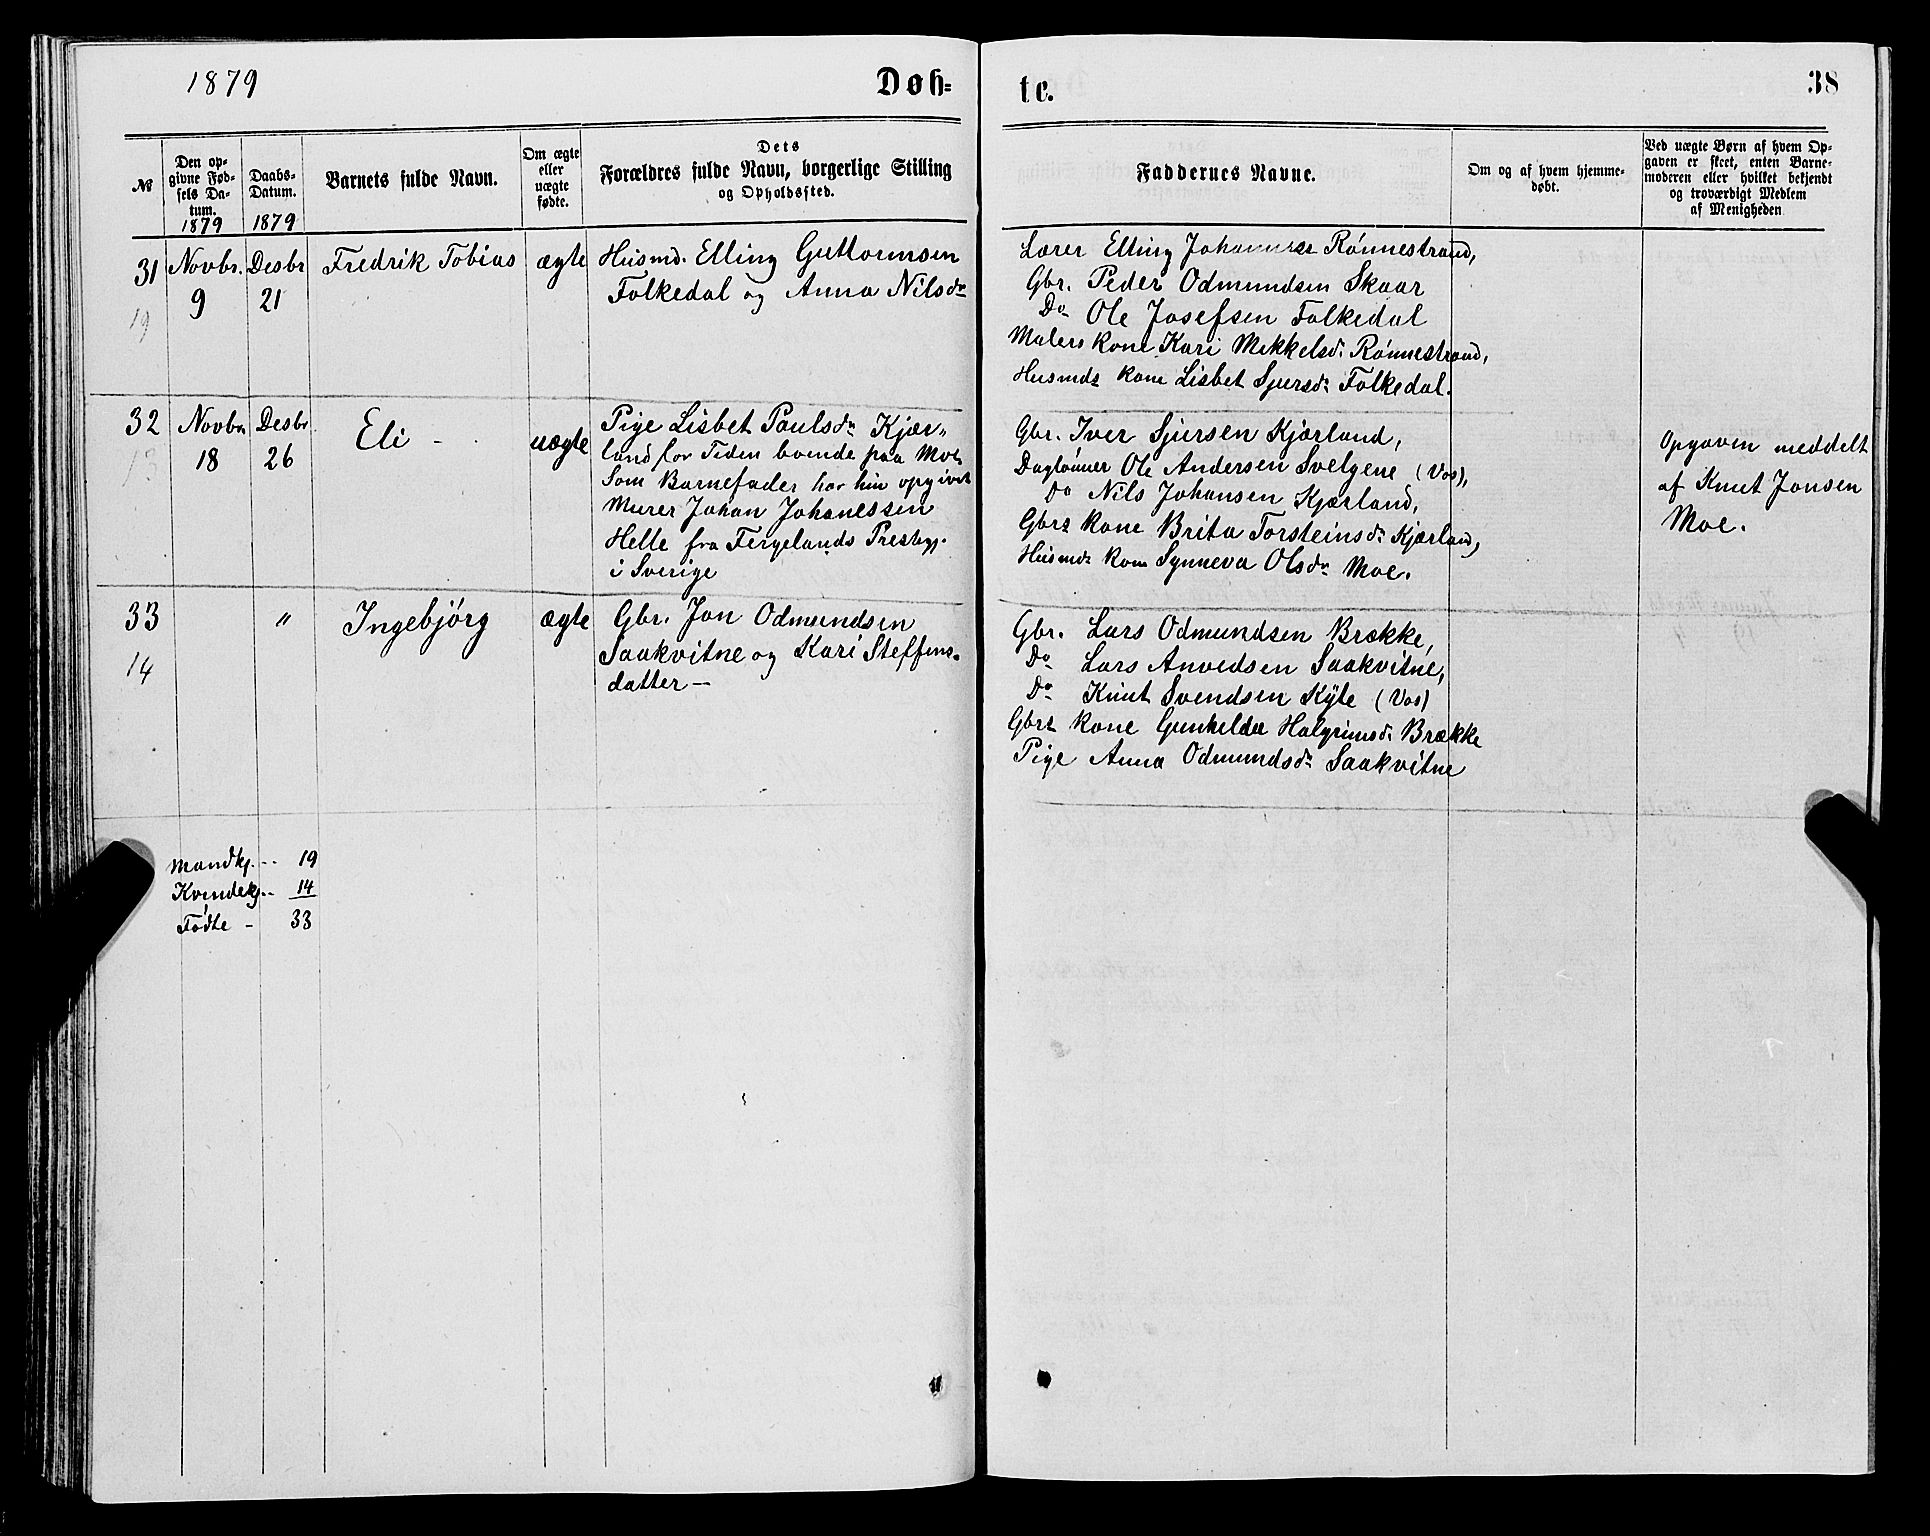 1879
Døb=
te.
38
№
Den op-
givne Fød-
sels Da-
tum.
1879
Daabs-
Datum.
1879
Barnets fulde Navn.
Om ægte
eller
uægte
fødte.
Dets
Forældres fulde Navn, borgerlige Stilling
og Opholdssted.
Faddernes Navne.
Om og af hvem hjemme-
døbt.
Ved uægte Børn af hvem Op-
gaven er skeet, enten Barne-
moderen eller hvilket bekjendt
og troværdigt Medlem
af Menigheden
31
19
Novbr.
9
Desbr
21
Fredrik Tobias
ægte
Husmd. Elling Guttormsen
Folkedal og Anna Nilsdr
Lærer Elling Johannesen Rønnestrand,
Gbr. Peder Odmundsen Skaar
Do Ole Josefsen Folkedal
Malers kone Kari Mikkelsd. Rønnestrand,
Husmds kone Lisbet Sjursdr Folkedal.
32
13
Novbr
18
Desbr
26
Eli -
uægte
Pige Lisbet Paulsdr Kjær„
land for Tiden boende paa Moe.
Som Barnefader har hun opgivet
Murer Johan Johanessen
Helle fra Fergelands Prestegj.
i Sverige
Gbr. Iver Sjursen Kjærland,
Daglønner Ole Andersen Svelgene (Vos),
Do Nils Johansen Kjærland,
Gbrs kone Brita Torsteinsdr Kjærland,
Husmds kone Synneva Olsdr Moe.
Opgaven meddelt
af Knut Jonsen
Moe.
33
14
"
Ingebjørg
ægte
Gbr. Jon Odmundsen
Saakvitne og Kari Steffens-
datter —
Gbr. Lars Odmundsen Brække,
Do Lars Anvedsen Saakvitne,
Do Knut Svendsen Kyte (Vos)
Gbrs kone Gunhilda Halgrimsd. Brække
Pige Anna Odmundsdr Saakvitne
Mandkj. -- 19
Kvindekj. -- 14
Fødte - 33